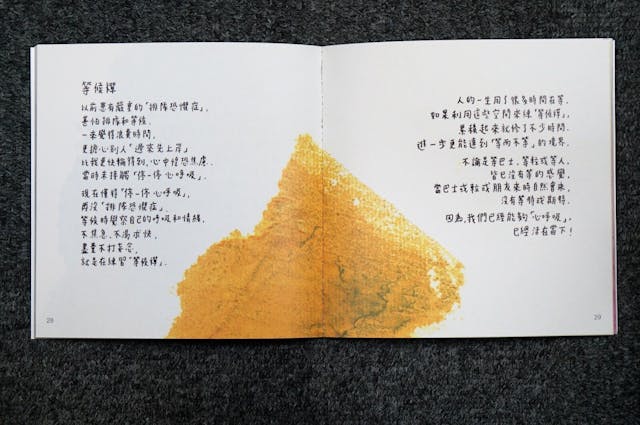 等候禪
以前患有嚴重的「排隊恐懼症」,
甚怕排隊和等候.
一來覺得浪費時間,
更擔心別人「過來先上岸」
比我更快輪得到,心中恐焦慮.
當時未接觸「停一停心呼吸」.
現在懂得「停一停心呼吸」,
再沒「排隊恐懼症」.
等候時覺察自己的呼吸和情緒,
不焦急、不渴求快,
盡量不打妄念,
就是在練習「等候禪」.
28
人的一生用了很多時間在等.
如果利用這些空閒來練「等候禪」,
累積起來就修了不少時間.
進一步更能達到「等而不等」的境界.
不論是等巴士、等較或等人,
皆已沒有等的感覺.
當巴士或較或朋友來時自然會來,
沒有等待或期待.
因為,我們已經能夠「心呼吸」,
已經活在當下!
29